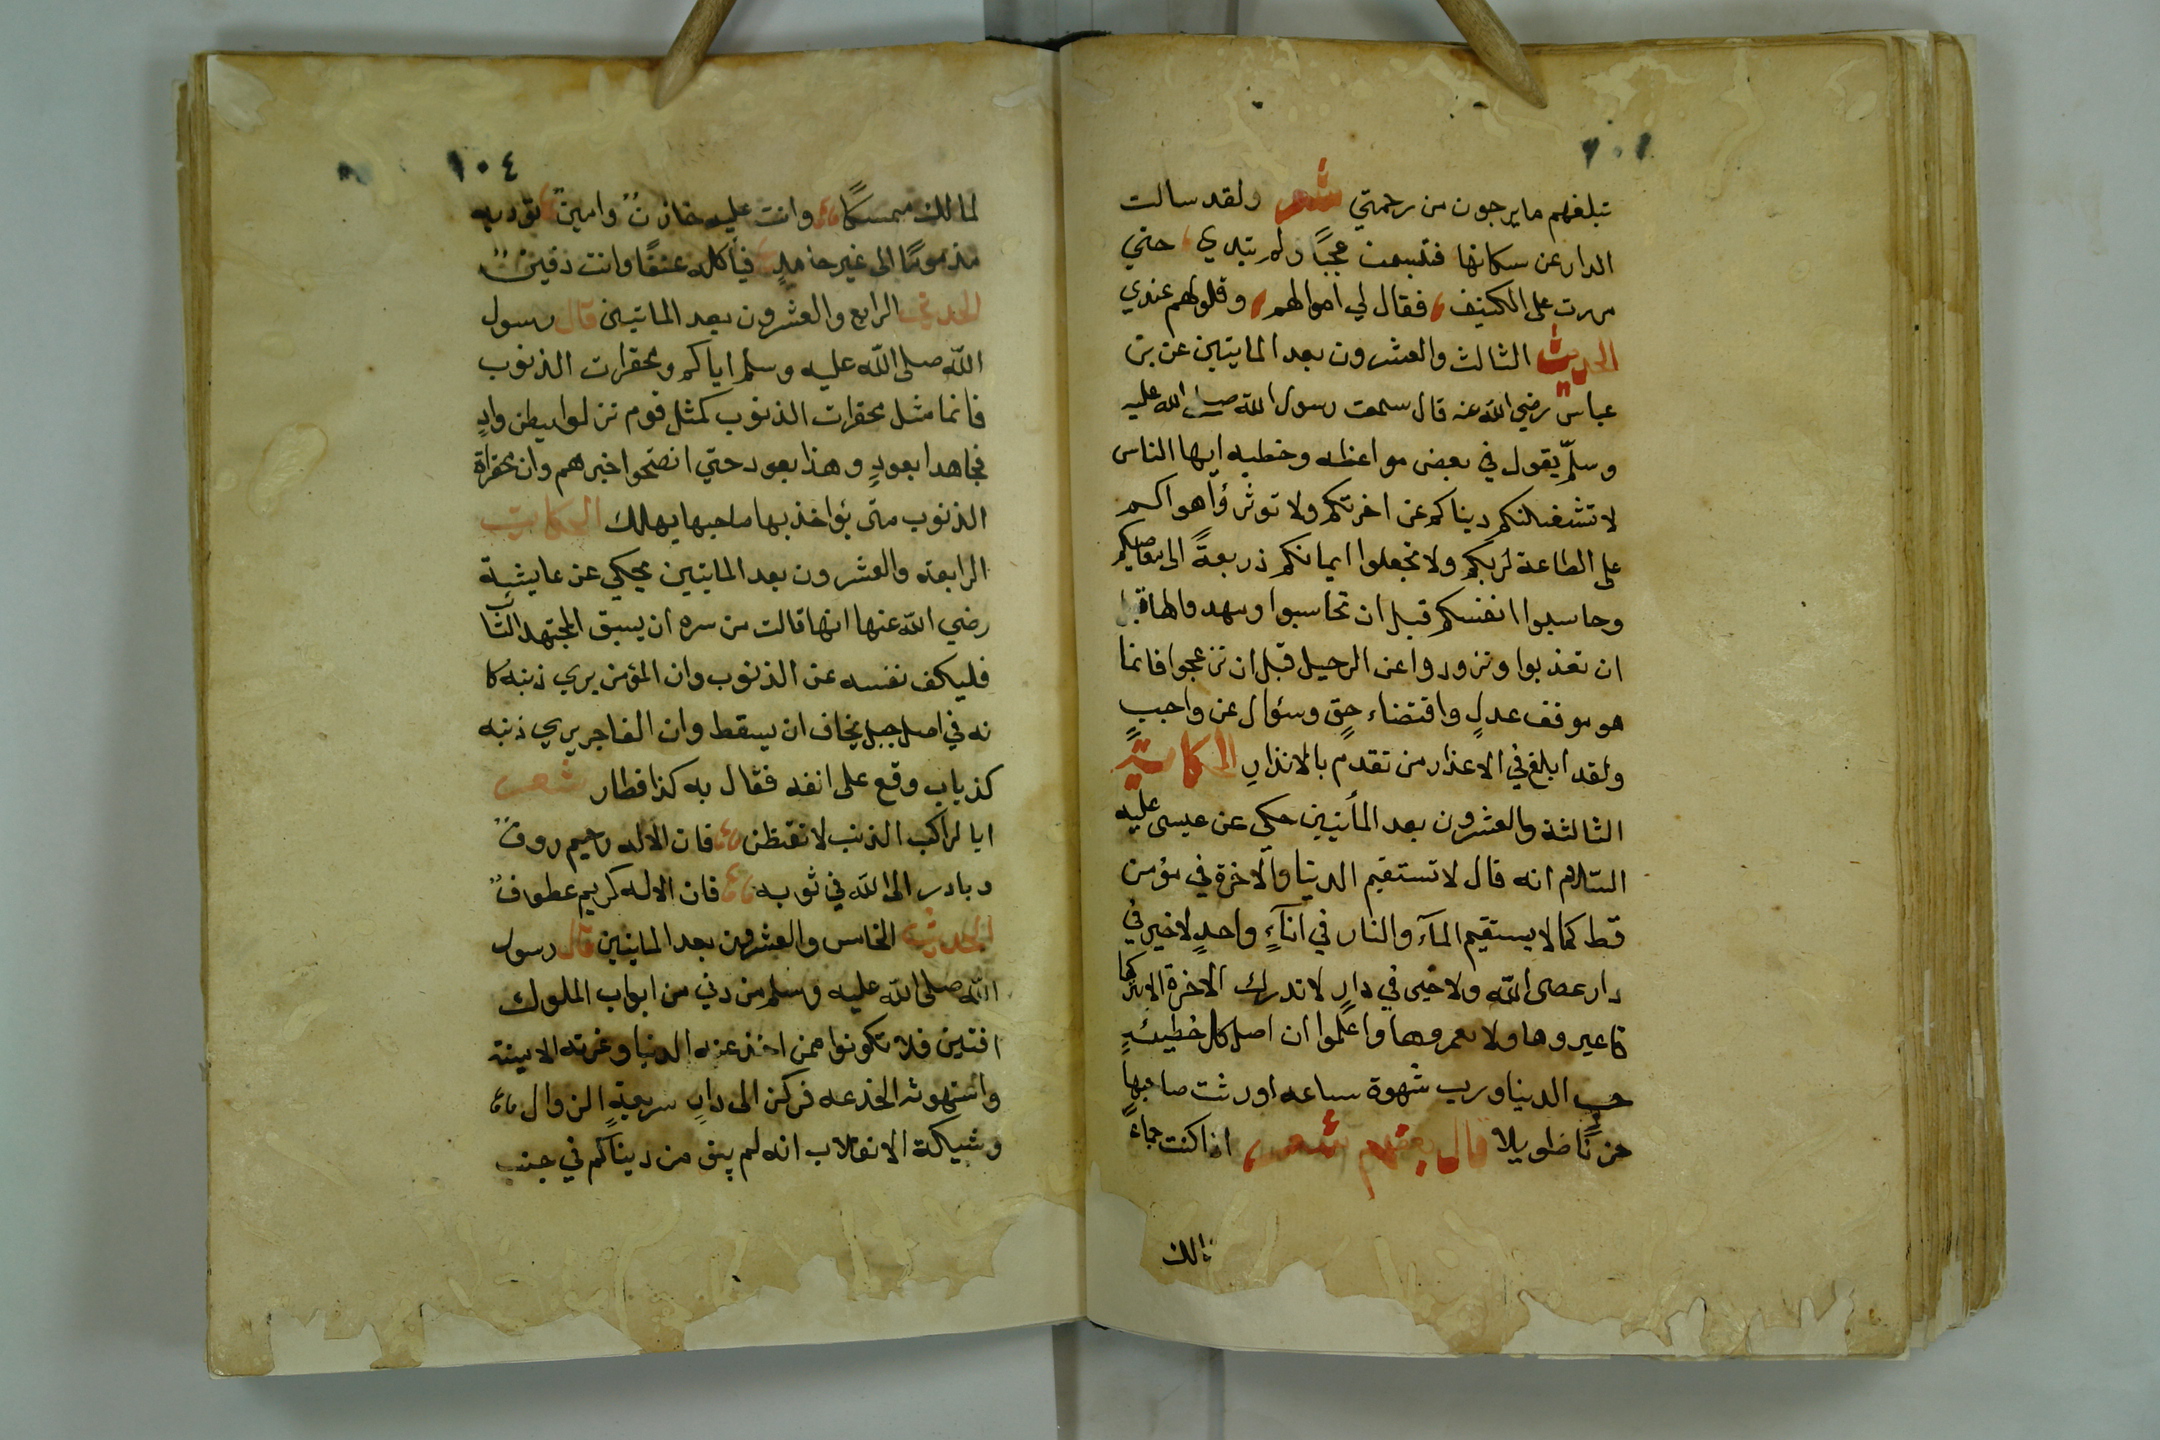 تبلغهم ما يرجون من رحمتي شعر ولقد سالت
الدار عن سكانها فتبسمت عجبًا ولم تبدي حتي
مررت على الكنيف فقال لي اموالهم ونولهم عندي
الحديث الثالث والعشرون بعد المايتين عن بن
عباس رضي الله عنه قال سمعت رسول الله صلى الله عليه
وسلم يقول في بعض مواعظه وخطبه ايها الناس
لا تشغلنكم ديناكم عن اخرتكم ولا توثروا اهواكم
على الطاعة لربكم ولا تجعلوا ايمانكم ذريعةً الى معاصيكم
وحاسبوا انفسكم قبل ان تحاسبوا ومهدوا لها قبل
ان تعذبوا وتزودوا عن الرحيل قبل ان تزعجوا فانما
هو موقف عدلٍ واقتضاء حقٍ وسئوال عن واجبٍ
ولقد ابلغ في الاعذار من تقدم بالانذارِ الحكاية
الثالثة والعشرون بعد المأتيين حكي عن عيسى عليه
السلام انه قال لا تستقيم الدنيا والآخرة في مؤمن
قط كما لا يستقيم المآء والنار في انآءٍ واحدٍ لا خير في
دار عصى الله ولا خيى في دارٍ لا تدرك الاخرة الا بتركها
فاعبروها ولا تعمروها واعلموا ان اصل كل خطيئةٍ
حب الدنيا ورب شهوة ساعه اورثت صاحبها
حزنًا طويلا قال بعضهم شعر اذا كنت جماعً
لمالك
١٠٤
لمالك ممسكًا وانت عليه خازنٌ وامينٌ تؤديه
مذمومًا الى غير حامدٍ فيأكله عنقًا وانت دفينٌ
الحديث الرابع والعشرون بعد الماتيين قال رسول
الله صلى الله عليه وسلم اياكم ومحقرات الذنوب
فانما مثل محقرات الذنوب كمثل قوم نزلوا ببطن وادٍ
فجا هدا بعودٍ وهذا بعود حتي انضحوا خبزهم وان محقراة
الذنوب متى يؤاخذ بها صاحبها يهلك الحكاية
الرابعه والعشرون بعد المايتين يحكي عن عايشة
رضي الله عنها انها قالت من سره ان يسبق المجتهد التائب
فليكف نفسه عن الذنوب وان المؤمن يري ذنبه كا
نه في اصل جبل يخاف ان يسقط وان الفاجر يري ذنبه
كذباب وقع على انفه فقال به كذا فطار شعر
ايا لراكب الذنب لا تقنطن فان الاله رحيم روفٌ
وبادر الى الله في ثوبه فان الاله كريم عطوفٌ
الحديث الخامس والعشرون بعد الماتيين قال رسول
الله صلى الله عليه وسلم من دني من ابواب الملوك
افتتن فلا تكونوا ممن اخذ عنه الدنيا وغرته الامينة
واستهوته الخدعه فركن الى دارٍ سريعةٍ الزوال
وشيكة الانقلاب انه لم يبق من ديناكم في جنب